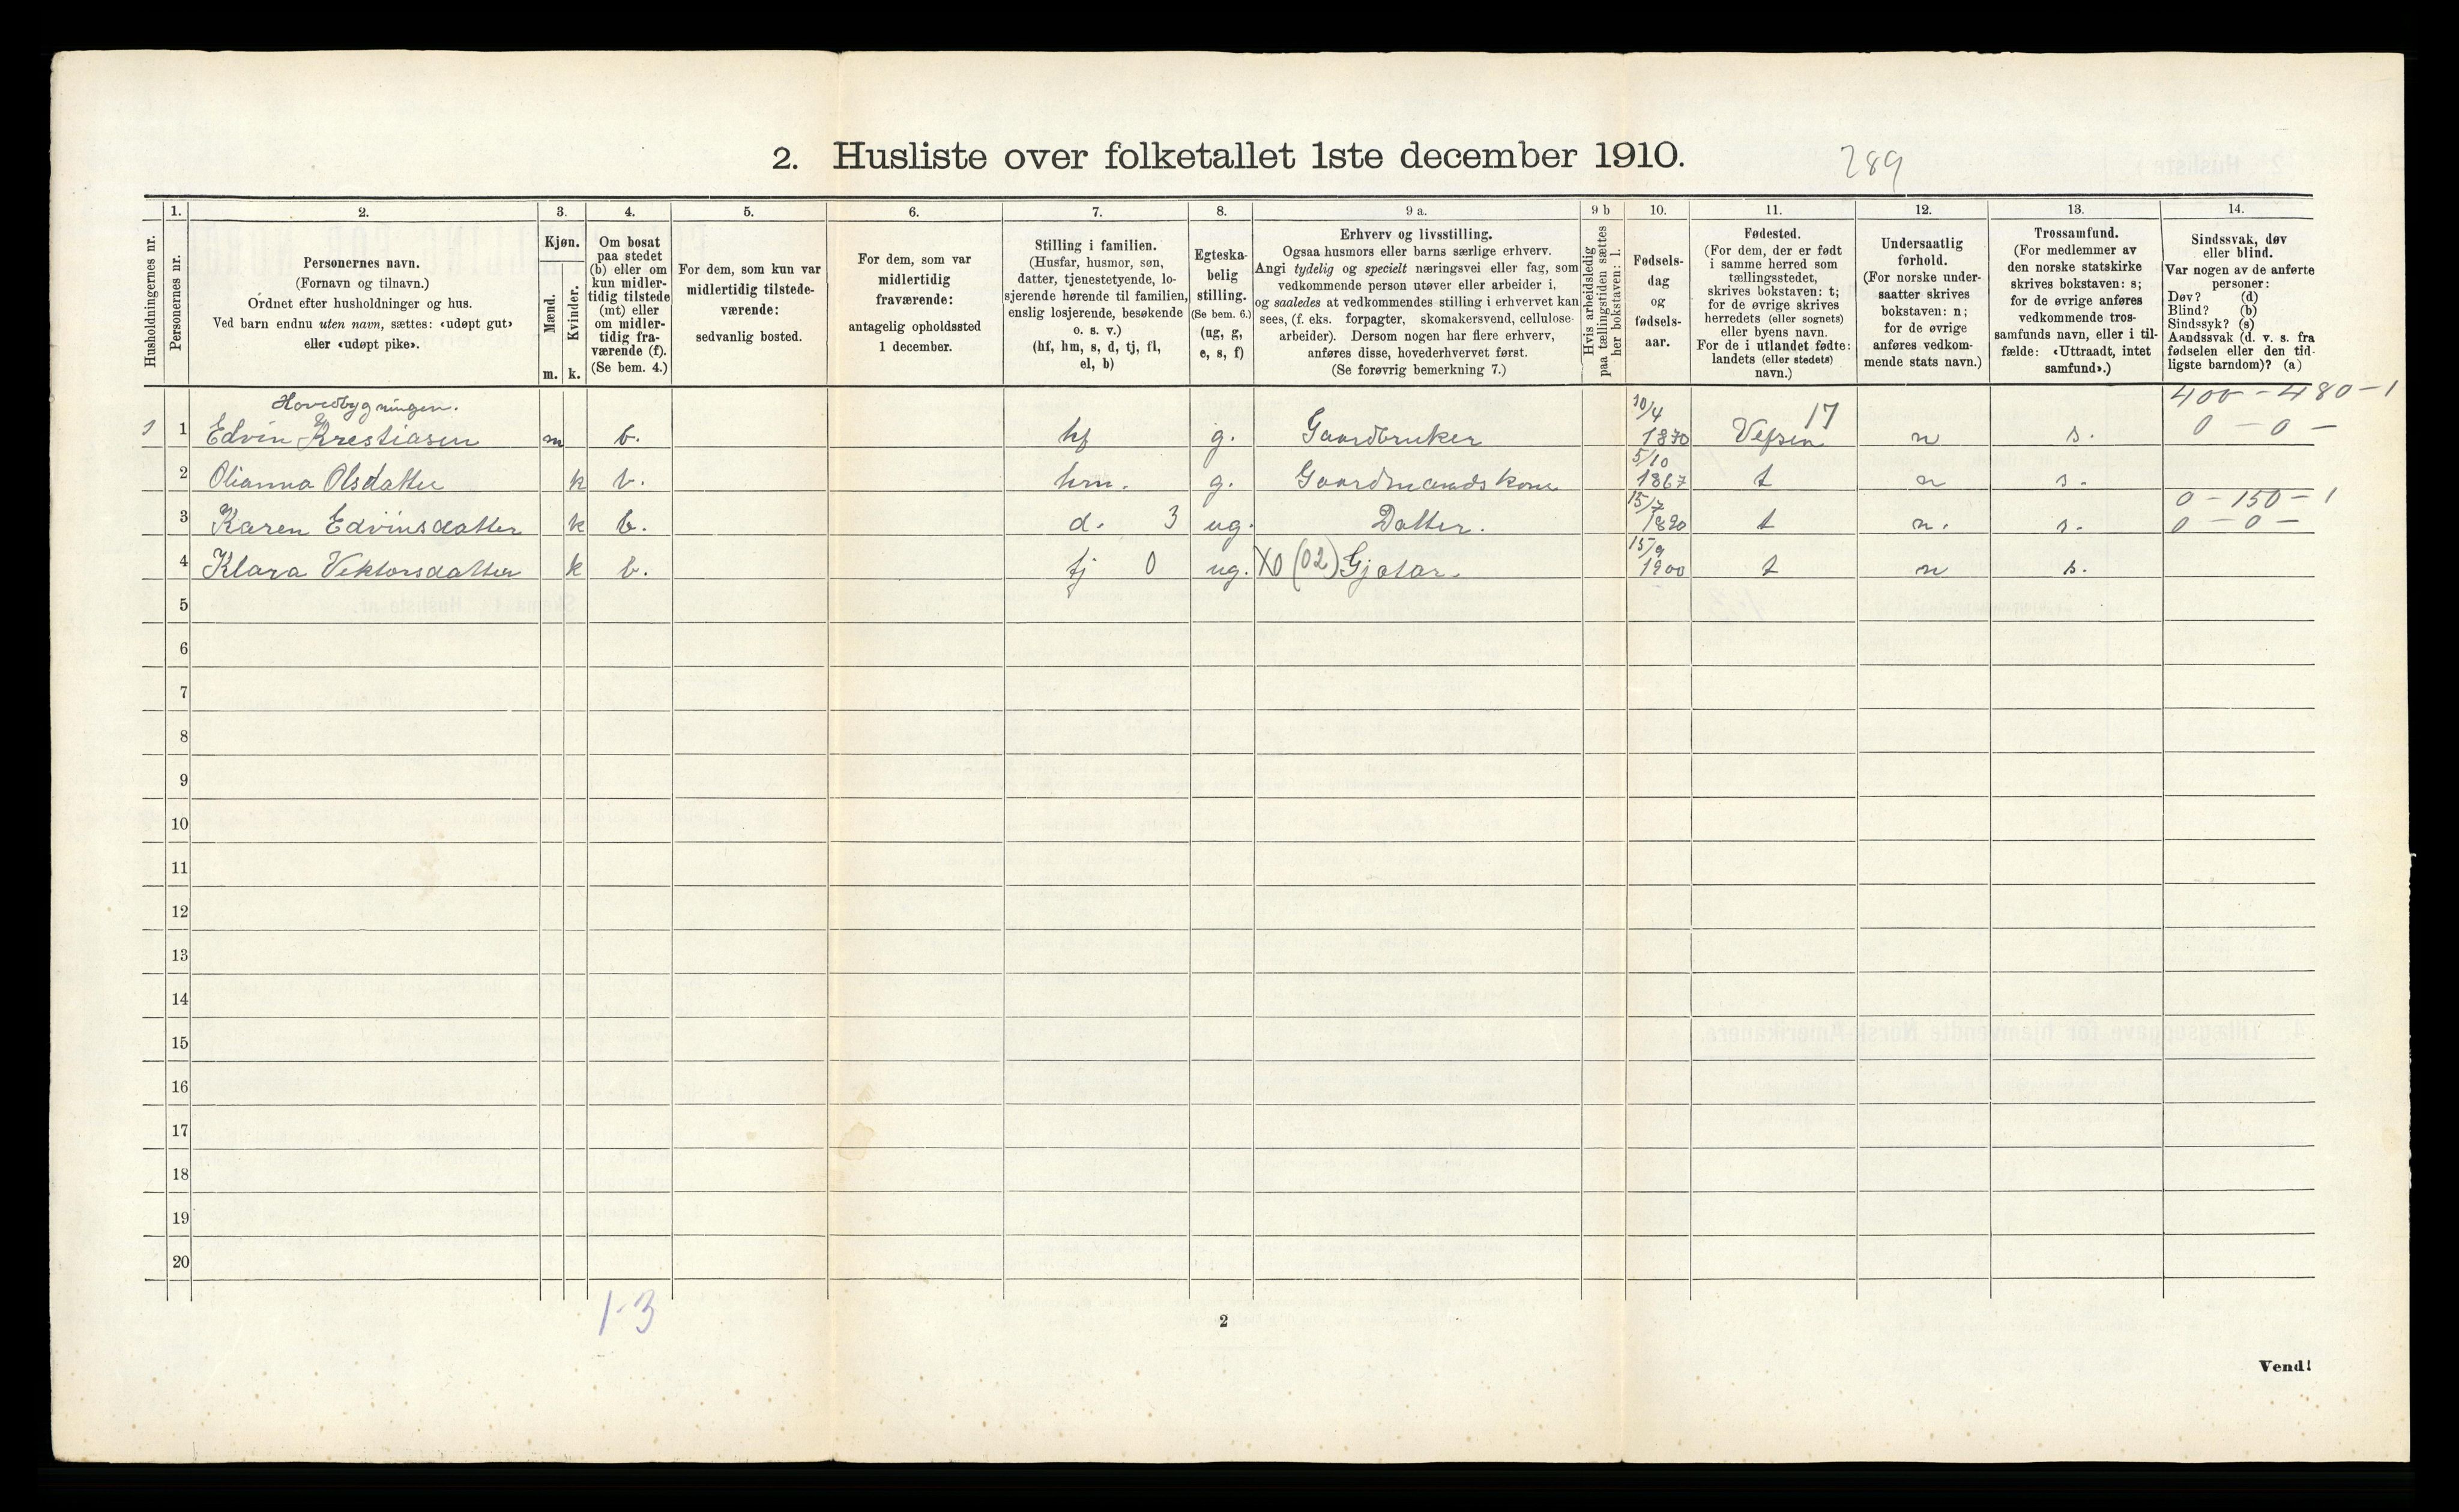 2. Husliste over folketallet 1ste december 1910.
289
Husholdningernes nr.
1.
Personernes nr.
2.
Personernes navn.
(Fornavn og tilnavn.)
Ordnet efter husholdninger og hus.
Ved barn endnu uten navn, sættes: «udøpt gut»
eller «udøpt pike».
3.
Kjøn.
Mænd.
Kvinder.
m. k.
4.
Om bosat
paa stedet
(b) eller om
kun midler-
tidig tilstede
(mt) eller
om midler-
tidig fra-
værende (f).
(Se bem. 4.)
5.
For dem, som kun var
midlertidig tilstede-
værende:
sedvanlig bosted.
6.
For dem, som var
midlertidig
fraværende:
antagelig opholdssted
1 december.
7.
Stilling i familien.
(Husfar, husmor, søn,
datter, tjenestetyende, lo-
sjerende hørende til familien,
enslig losjerende, besøkende
o. s. v.)
(hf, hm, s, d, tj, fl,
el, b)
8.
Egteska-
belig
stilling.
(Se bem. 6.)
(ug, g,
e, s, f)
9 a.
Erhverv og livsstilling.
Ogsaa husmors eller barns særlige erhverv.
Angi tydelig og specielt næringsvei eller fag, som
vedkommende person utøver eller arbeider i,
og saaledes at vedkommendes stilling i erhvervet kan
sees, (f. eks. forpagter, skomakersvend, cellulose-
arbeider). Dersom nogen har flere erhverv,
anføres disse, hovederhvervet først.
(Se forøvrig bemerkning 7.)
9 b
Hvis arbeidsledig
paa tællingstiden sættes
her bokstaven: l.
10.
Fødsels-
dag
og
fødsels-
aar.
11.
Fødested.
(For dem, der er født
i samme herred som
tællingsstedet,
skrives bokstaven: t;
for de øvrige skrives
herredets (eller sognets)
eller byens navn.
For de i utlandet fødte:
landets (eller stedets)
navn.)
12.
Undersaatlig
forhold.
(For norske under-
saatter skrives
bokstaven: n;
for de øvrige
anføres vedkom-
mende stats navn.)
13.
Trossamfund.
(For medlemmer av
den norske statskirke
skrives bokstaven: s;
for de øvrige anføres
vedkommende tros-
samfunds navn, eller i til-
fælde: «Uttraadt, intet
samfund».)
14.
Sindssvak, døv
eller blind.
Var nogen av de anførte
personer:
Døv? (d)
Blind? (b)
Sindssyk? (s)
Aandssvak (d. v. s. fra
fødselen eller den tid-
ligste barndom)? (a)
Hovedbygningen. 10/4 17 400 - 480 - 1
1 1 Edvin Krestiasen m b. hf g. Gaardbruker 1870 Vefsen n s. 0 - 0 -
5/10
2 Olianna Olsdatter k b. hm. g. Gaardmandskone 1867 t n s.
15/7 0 - 150 - 1
3 Karen Edvinsdatter k b. d. 3 ug. Datter. 1890 t n. s. 0 - 0 -
15/9
4 Klara Vektorsdatter k b. tj 0 ug. X0 (02) Gjætar. 1900 t n s.
5
6
7
8
9
10
11
12
13
14
15
16
17
18
19
20
1-3
2
Vend!